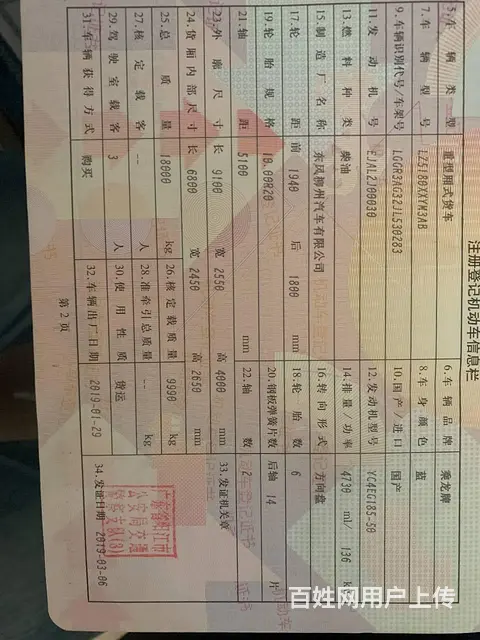 注册登记机动车信息栏
5.车辆类型 重型厢式货车 6.车辆品牌 乘龙牌
7.车辆型号 LZ5180XXYM3AB 8.车身颜色 蓝
9.车辆识别代号/车架号 LGGR3AG32JL530283 10.国产/进口 国产
11.发动机号 EJAL2J00030 12.发动机型号 YC4EG185-50
13.燃料种类 柴油 14.排量/功率 4730 ml/ 136
15.制造厂名称 东风柳州汽车有限公司 16.转向形式 方向盘
17.轮距 前 1940 后 1800 mm 18.轮胎数 6
19.轮胎规格 10.00R20 20.钢板弹簧片数 后轴 14 片
21.轴距 5100 mm 22.轴数 2
23.外廓尺寸 长 9100 宽 2550 高 4000 mm 33.发证机关章
24.货厢内部尺寸 长 6800 宽 2450 高 2650 mm
25.总质量 18000 kg 26.核定载质量 9990 kg
27.核定载客 -- 人 28.准牵引总质量 -- kg
29.驾驶室载客 3 人 30.使用性质 货运
31.车辆获得方式 购买 32.车辆出厂日期 2019-01-29 34.发证日期 2019-03-06
第2页
百姓网用户上传